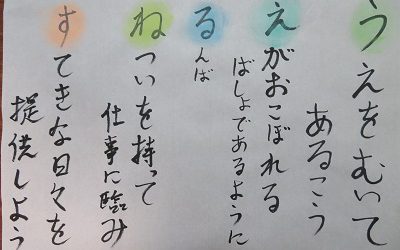 うえをむいて
あるこう
えがおこぼれる
ばしょであるように
るんば
ねついを持って
仕事に臨み
すてきな日々を
提供しよう